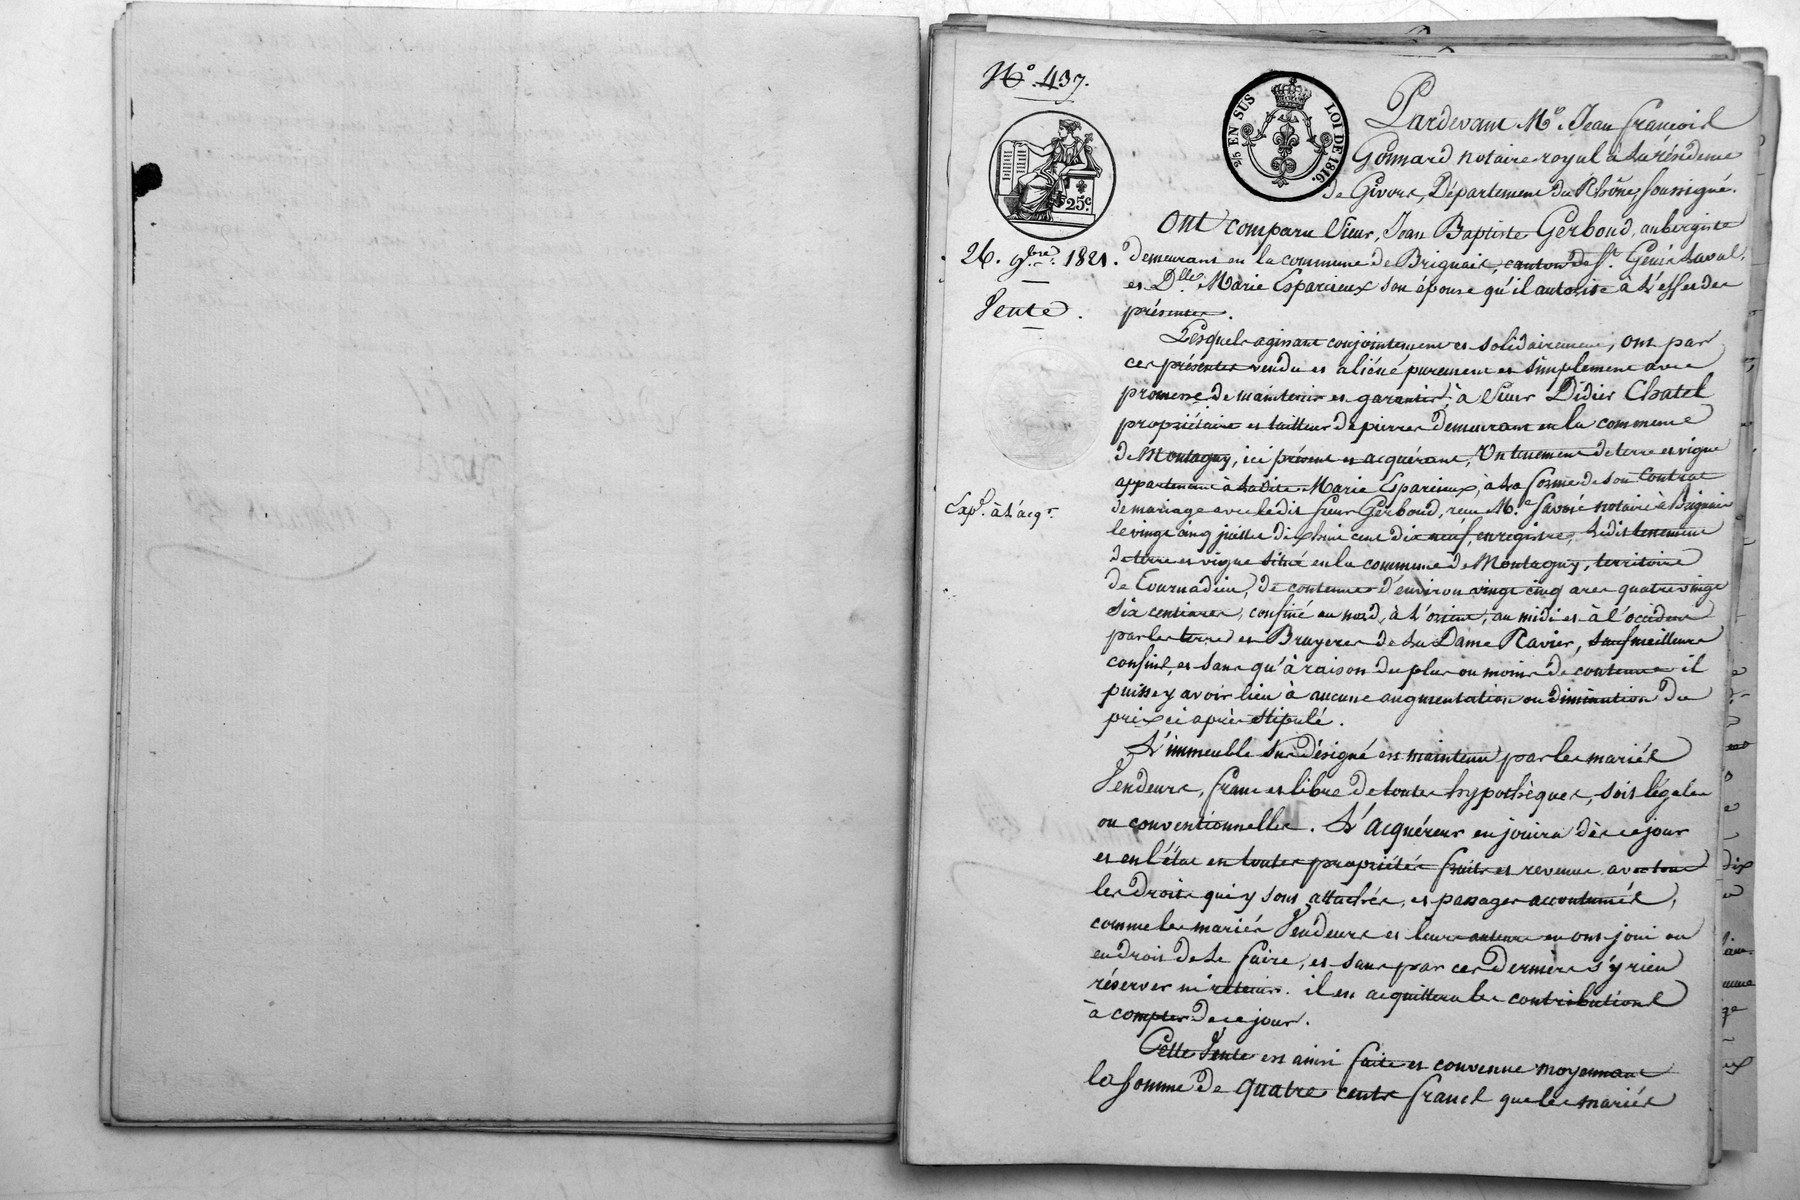 N.° 437.
2/5 EN SUS LOI DE 1816.
25c
26. 9bre. 1821.
Vente.
Exp.on à l'acq.r
Pardevant M.e Jean françois
Gonnard notaire royal à la résidence
de Givors, Département du Rhône, soussigné.
Ont comparu Sieur, Jean Baptiste Gerboud, aubergiste
demeurant en la commune de Brignais, canton de S.t Genis Laval,
et D.lle Marie Esparcieux son épouse qu'il autorise à l'effet des
présentes.
Lesquels agissant conjointement et solidairement, ont par
ces présentes vendu et aliéné purement et simplement avec
promesse de maintenir et garantir, à Sieur Didier Chatel
propriétaire et tailleur de pierres demeurant en la commune
de Montagny, ici présent et acquérant, Un tenement de terre et vigne
appartenant à ladite Marie Esparcieux, à la forme de son Contrat
de mariage avec ledit sieur Gerboud, reçu M.e notaire à Brignais
le vingt cinq juillet dix huit cent dix neuf, enregistré, ledit tenement
de terre et vigne situé en la commune de Montagny, territoire
de Tournadieu, de contenue d'environ vingt cinq ares quatre vingt
six centiares, confiné au nord, à l'orient, au midi et à l'occident
par les terres et Bruyeres de la Dame Ravier, sauf meilleurs
confins, et sans qu'à raison du plus ou moins de contenue il
puisse y avoir lieu à aucune augmentation ou diminution du
prix ci après stipulé.
L'immeuble sus désigné est maintenu par les mariés
Vendeurs, franc et libre de toutes hypothèques, soit légales
ou conventionnelles. L'acquéreur en jouira dès ce jour
et en l'état en toutes propriétés fruits et revenus avec tous
les droits qui y sont attachés, et passages accoutumés,
comme les mariés Vendeurs et leurs auteurs en ont joui ou
eu droit de le faire, et sans par ces derniers s'y rien
réserver ni retenir. il en acquittera les contributions
à compter de ce jour.
Cette Vente est ainsi faite et convenue moyennant
la somme de quatre cents francs que les mariés